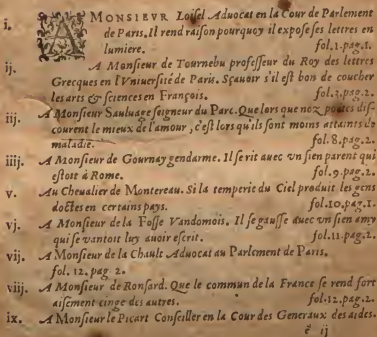 i. A MONSIEVR Loisel Aduocat en la Cour de Parlement
de Paris. Il rend raison pourquoy il expose ses lettres en
lumiere. fol.1.pag.1.
ij. A Monsieur de Tournebu professeur du Roy des lettres
Grecques en l'Vniuersité de Paris. Sçauoir s'il est bon de coucher
les arts & sciences en François. fol.2.pag.2.
iij. A Monsieur Sauluage seigneur du Parc. Que lors que noz poëtes dis-
courent le mieux de l'amour, c'est lors qu'ils sont moins attaints de
maladie. fol.8.pag.2.
iiij. A Monsieur de Gournay gendarme. Il se rit auec vn sien parent qui
estoit à Rome. fol.9.pag.2.
v. Au Cheualier de Montereau. Si la temperie du Ciel produit les gens
doctes en certains pays. fol.10.pag.1.
vj. A Monsieur de la Fosse Vandomois. Il se gausse auec vn sien amy
qui se vantoit luy auoir escrit. fol.11.pag.2.
vij. A Monsieur de la Chault Aduocat au Parlement de Paris.
fol. 12. pag. 2.
viij. A Monsieur de Ronsard. Que le commun de la France se rend fort
aisément cinge des autres. fol.12.pag.2.
ix. A Monsieur le Picart Conseiller en la Cour des Generaux des aides.
é ij